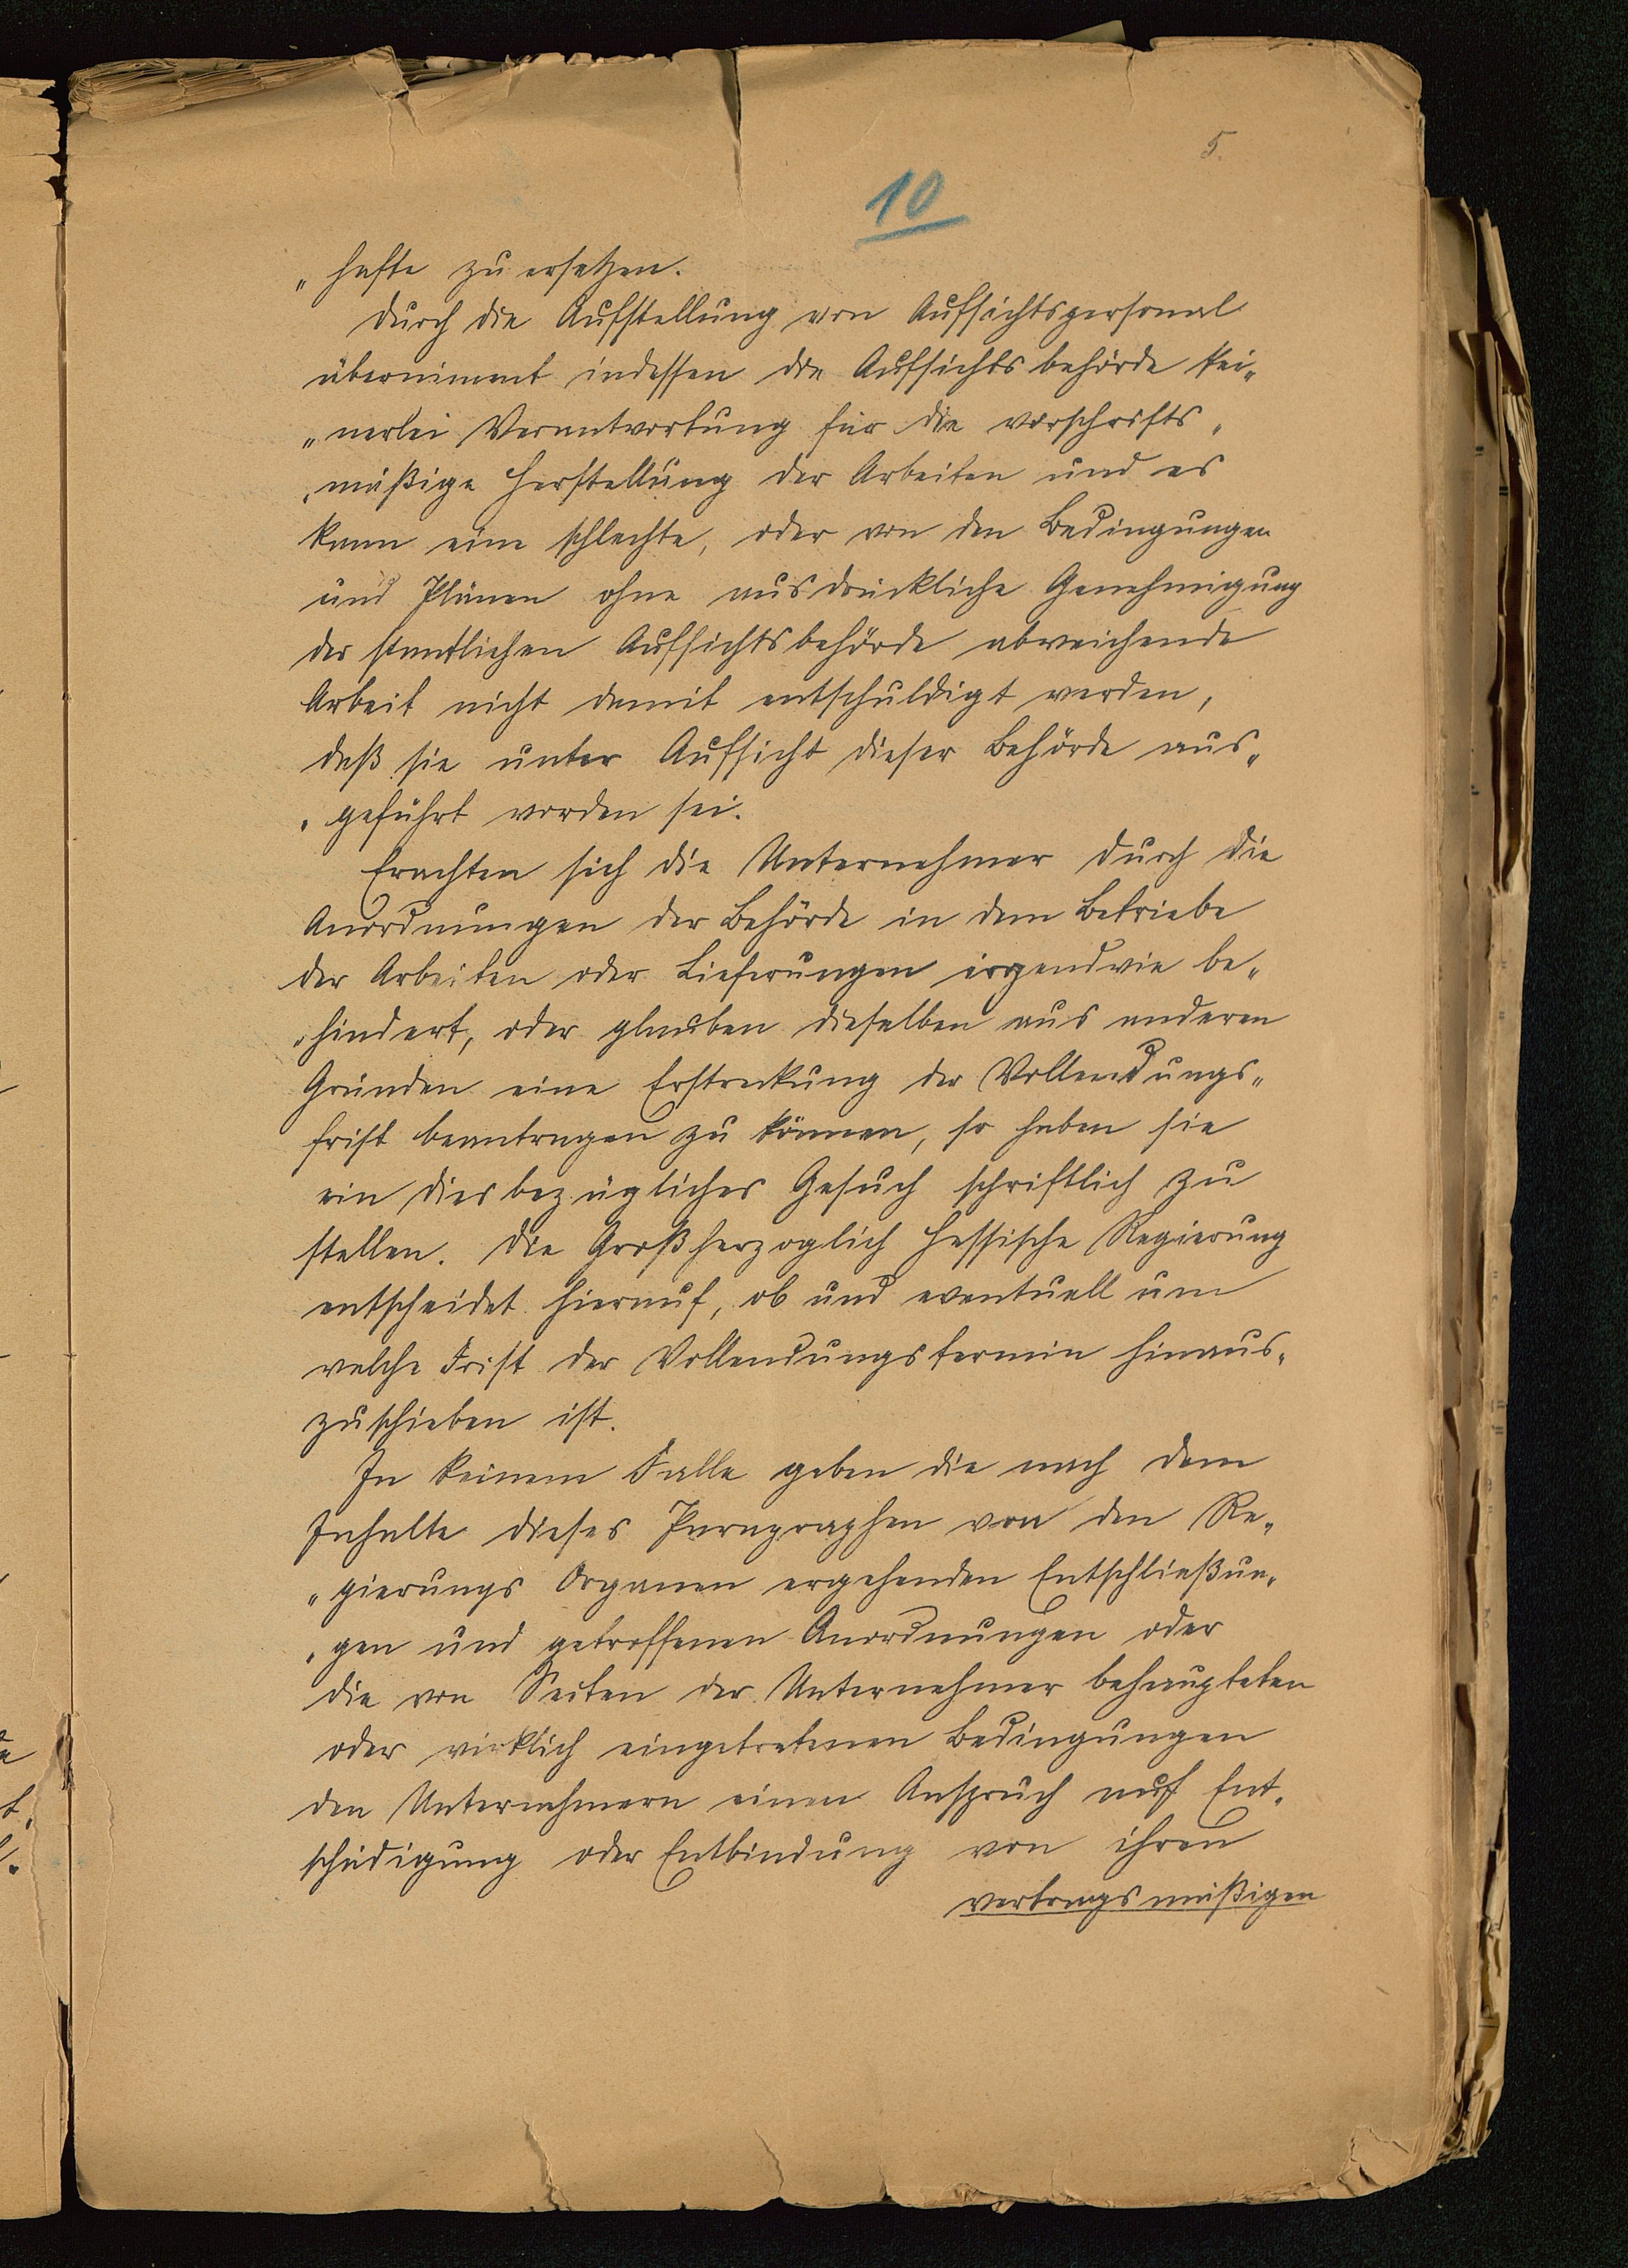 5.
10
„hafte zu ersetzen.
Durch die Aufstellung von Aufsichtspersonal
übernimmt indessen die Aufsichtsbehörde kei„
„nerlei Verantwortung für die vorschrifts„
„mäßige Herstellung der Arbeiten und es
kann eine schlechte, oder von den Bedingungen
und Plänen ohne ausdrückliche Genehmigung
der staatlichen Aufsichtsbehörde abweichende
Arbeit nicht damit entschuldigt werden,
daß sie unter Aufsicht dieser Behörde aus„
„geführt worden sei.
Erachten sich die Unternehmer durch die
Anordnungen der Behörde in dem Betriebe
der Arbeiten oder Lieferungen irgendwie be„
„hindert, oder glauben dieselben aus anderen
Gründen eine Erstreckung der Vollendungs„
frist beantragen zu können, so haben sie
ein diesbezügliches Gesuch schriftlich zu
stellen. Die Großherzoglich Hessische Regierung
entscheidet hierauf, ob und eventuell um
welche Frist der Vollendungstermin hinaus„
zuschieben ist.
In keinem Falle geben die nach dem
Inhalte dieses Paragraphen von den Re„
„gierungs Organen ergehenden Entschließun„
„gen und getroffenen Anordnungen oder
die von Seiten der Unternehmer behaupteten
oder wirklich eingetretenen Bedingungen
den Unternehmern einen Anspruch auf Ent„
schädigung oder Entbindung von ihren
vertragsmäßigen